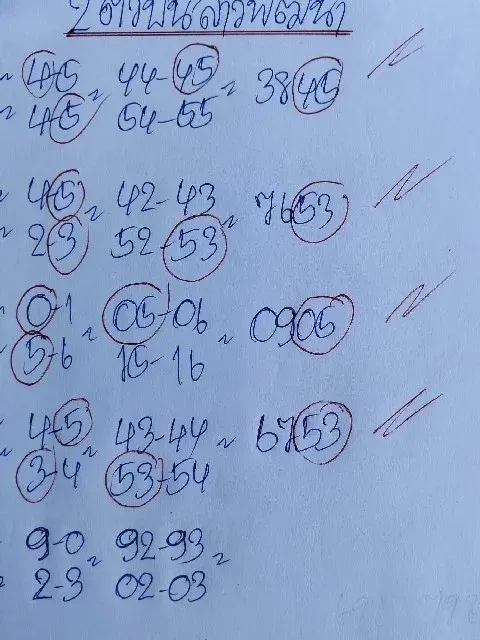 2 ตัวบนลาวพัฒนา
4-5 ~ 44-45 ~ 3845
4-5 54-55
4-5 ~ 42-43 ~ 7653
2-3 52-53
0-1 ~ 05-06 ~ 0905
5-6 15-16
4-5 ~ 43-44 ~ 6753
3-4 53-54
9-0 ~ 92-93 ~
2-3 02-03